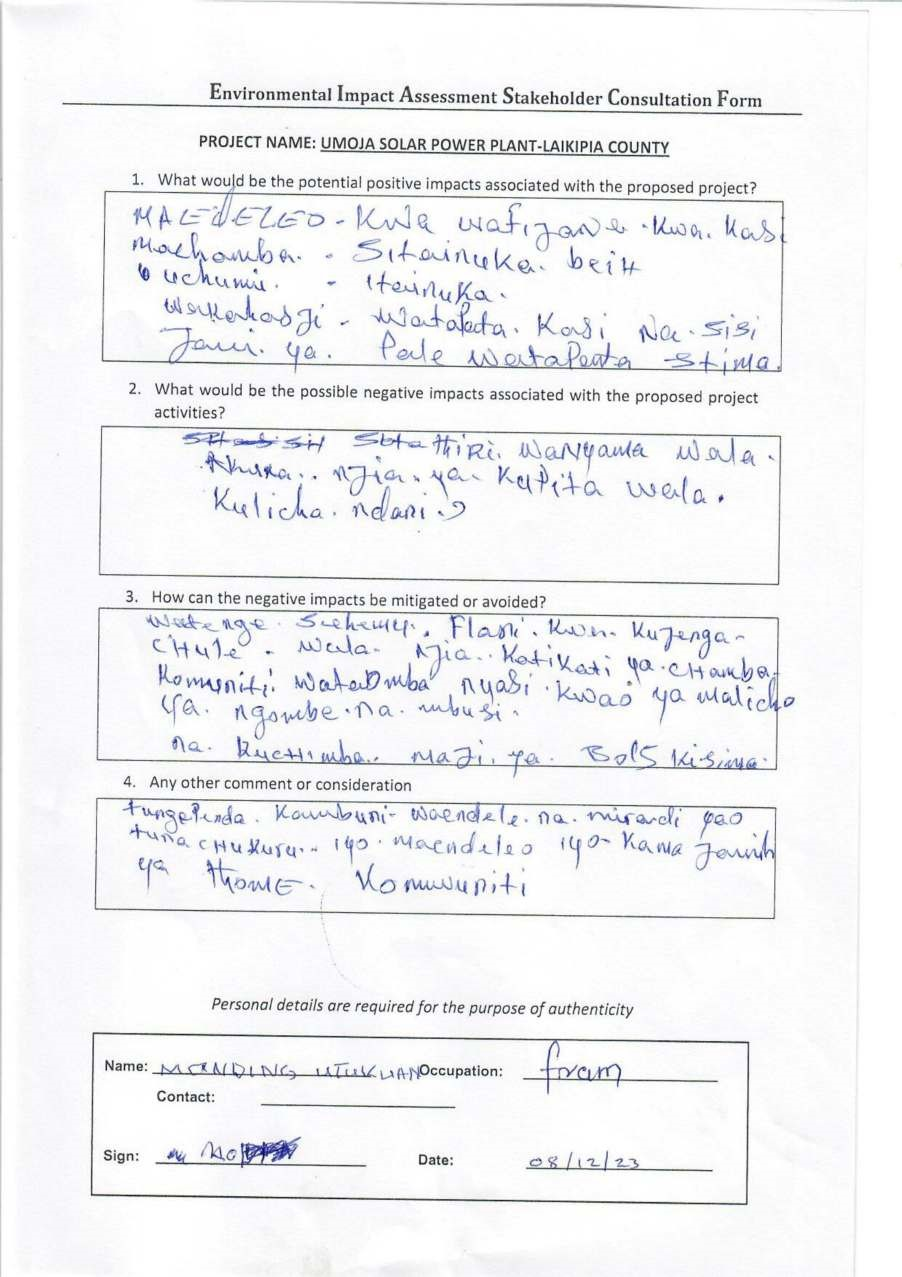 Environmental Impact Assessment Stakeholder Consultation Form
PROJECT NAME: UMOJA SOLAR POWER PLANT-LAIKIPIA COUNTY
1. What would be the potential positive impacts associated with the proposed project?
Kwa Kwa. Kasi
Machamba. - Sitainuka. beiH
uchumi. - Itainuka.
- Watapata. Kasi Na. sisi
Jam. ya. Pale Watapata stima.
2. What would be the possible negative impacts associated with the proposed project
activities?
WaNyama wala.
njia. ya. KuPita wala.
Kulicha. ndani.
3. How can the negative impacts be mitigated or avoided?
Flani. Kwa. KuJenga-
CHule. wala- NJia. KatiKati ya. CHamba.
Komuniti. nyasi. Kwao ya malicho
ya. ngombe. na. mbusi.
na. KuCHimba. maJi. ya. Kisima.
4. Any other comment or consideration
tungePenda. Kambuni- waendele. na. miradi yao
iyo. maendeleo iyo- Kama Jamih
ya THOME.
Personal details are required for the purpose of authenticity
Name: Occupation:
Contact:
Sign: Date: 08/12/23